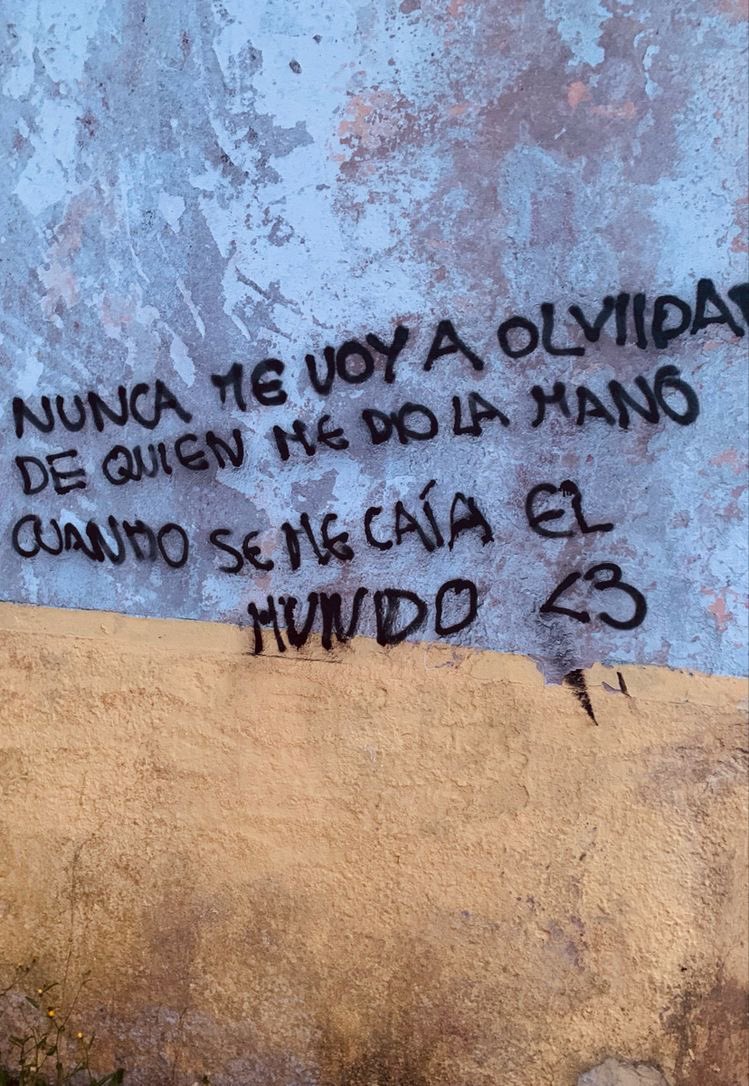 NUNCA ME VOY A OLVIIDAR
DE QUIEN ME DIO LA MANO
CUANDO SE ME CAÍA EL
MUNDO <3